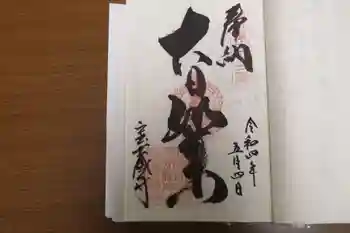 奉納
大日如来
令和四年
五月四日
宝蔵寺